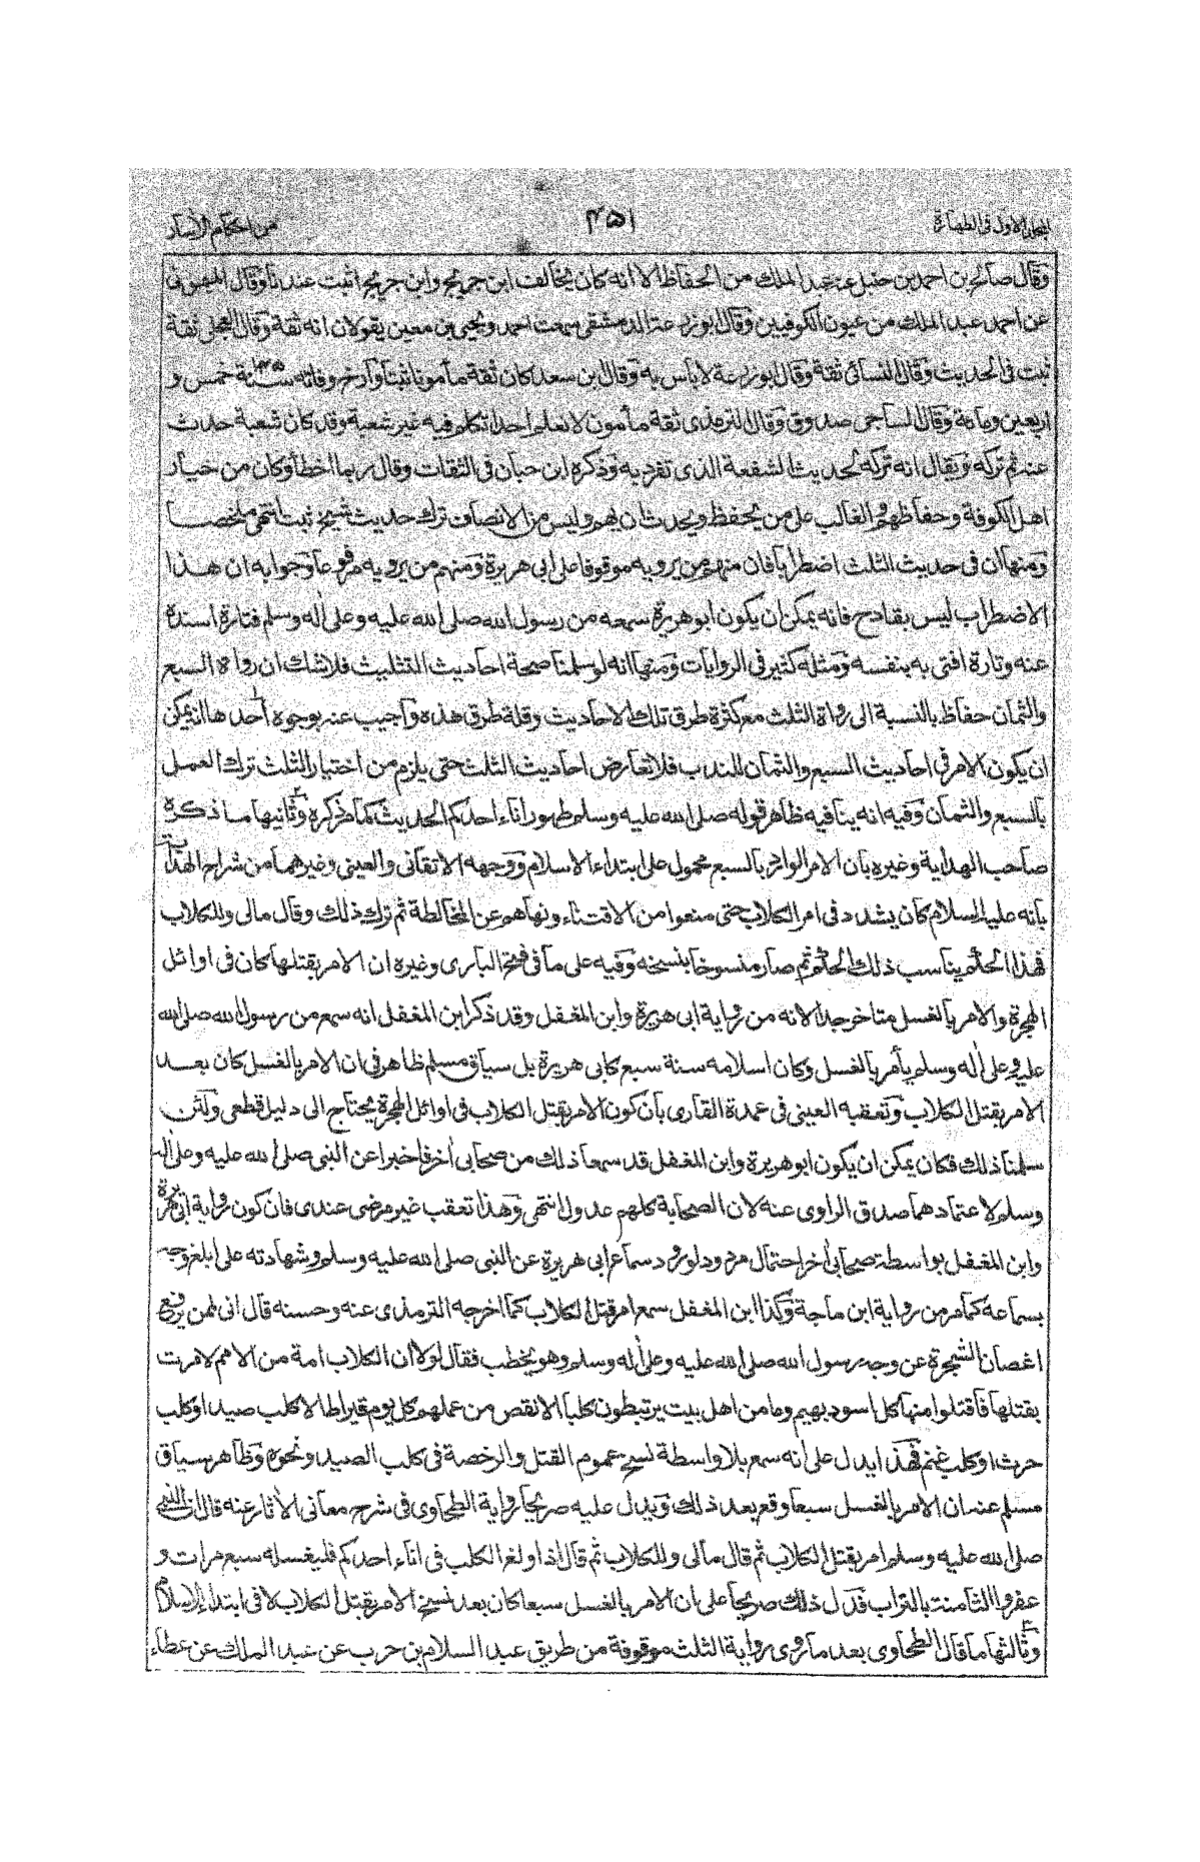 المجلد الاول فى الطهارة
٤٥١
من احكام الأسار
وقال صالح بن احمد بن حنبل عن عبد الملك من الحفاظ الا انه كان يخالف ابن جريج وابن جريج اثبت عندنا وقال الميمونى
عن احمد عبد الملك من عيون الكوفيين وقال ابو زرعة الدمشقى سمعت احمد ويحيى بن معين يقولان انه ثقة وقال العجلى ثقة
ثبت فى الحديث وقال النسائى ثقة وقال ابو زرعة لا باس به وقال بن سعد كان ثقة مأمونا ثبتا وارخ وفاته سنة ١٤٥ خمس و
اربعين ومائة وقال الساجى صدوق وقال الترمذى ثقة مأمون لا نعلم احدا تكلم فيه غير شعبة وقد كان شعبة حدث
عنه ثم تركه ويقال انه تركه لحديث الشفعة الذى تفرد به وذكره ابن حبان فى الثقات وقال ربما اخطأ وكان من خيار
اهل الكوفة وحفاظهم والغالب على من يحفظ ويحدث ان يهم وليس من الانصاف ترك حديث شيخ ثبت انتهى ملخصا
ومنها ان فى حديث الثلث اضطرابا فان منهم من يرويه موقوفا على ابى هريرة ومنهم من يرويه مرفوعا وجوابه ان هذا
الاضطراب ليس بقادح فانه يمكن ان يكون ابو هريرة سمعه من رسول الله صلى الله عليه وعلى اله وسلم فتارة اسنده
عنه وتارة افتى به بنفسه ومثله كثير فى الروايات ومنها انه لو سلمنا صحة احاديث التثليث فلا شك ان رواة السبع
والثمان حفاظ بالنسبة الى رواة الثلث مع كثرة طرق تلك الاحاديث وقلة طرق هذه واجيب عنه بوجوه احدها انه يمكن
ان يكون الامر فى احاديث السبع والثمان للندب فلا تعارض احاديث الثلث حتى يلزم من اختيار الثلث ترك العمل
بالسبع والثمان وفيه انه ينافيه ظاهر قوله صلى الله عليه وسلم طهور اناء احدكم الحديث كما مر ذكره وثانيها ما ذكره
صاحب الهداية وغيره بان الامر الوارد بالسبع محمول على ابتداء الاسلام ووجهه الاتقانى والعينى وغيرهما من شراح الهداية
بانه عليه السلام كان يشدد فى امر الكلاب حتى منعوا من الاقتناء ونهاهم عن المخالطة ثم ترك ذلك وقال مالى وللكلاب
فهذا الحكم يناسب ذلك الحكم ثم صار منسوخا بنسخه وفيه على ما فى فتح البارى وغيره ان الامر بقتلها كان فى اوائل
الهجرة والامر بالغسل متاخر جدا لانه من رواية ابى هريرة وابن المغفل وقد ذكر ابن المغفل انه سمع من رسول الله صلى الله
عليه وعلى اله وسلم يأمر بالغسل وكان اسلامه سنة سبع كابى هريرة بل سياق مسلم ظاهر فى ان الامر بالغسل كان بعد
الامر بقتل الكلاب وتعقبه العينى فى عمدة القارى بان كون الامر بقتل الكلاب فى اوائل الهجرة يحتاج الى دليل قطعى ولئن
سلمنا ذلك فكان يمكن ان يكون ابو هريرة وابن المغفل قد سمعا ذلك من صحابى اخر فاخبرا عن النبى صلى الله عليه وعلى اله
وسلم لاعتمادهما صدق الراوى عنه لان الصحابة كلهم عدول انتهى وهذا تعقب غير مرضى عندى فان كون رواية ابى هريرة
وابن المغفل بواسطة صحابى اخر احتمال مردود لورود سماع ابى هريرة عن النبى صلى الله عليه وسلم وشهادته على ابلغ وجه
بسماعه كما مر من رواية ابن ماجة وكذا ابن المغفل سمع امر قتل الكلاب كما اخرجه الترمذى عنه وحسنه قال انى لمن يرفع
اغصان الشجرة عن وجه رسول الله صلى الله عليه وعلى اله وسلم وهو يخطب فقال لولا ان الكلاب امة من الامم لامرت
بقتلها فاقتلوا منها كل اسود بهيم وما من اهل بيت يرتبطون كلبا الا نقص من عملهم كل يوم قيراط الا كلب صيد او كلب
حرث او كلب غنم فهذا يدل على انه سمع بلا واسطة نسخ عموم القتل والرخصة فى كلب الصيد ونحوه وظاهر سياق
مسلم عنه ان الامر بالغسل سبعا وقع بعد ذلك ويدل عليه صريحا رواية الطحاوى فى شرح معانى الأثار عنه قال ان النبى
صلى الله عليه وسلم امر بقتل الكلاب ثم قال مالى وللكلاب ثم قال اذا ولغ الكلب فى اناء احدكم فليغسله سبع مرات و
عفروا الثامنة بالتراب فدل ذلك صريحا على ان الامر بالغسل سبعا كان بعد نسخ الامر بقتل الكلاب لا فى ابتداء الاسلام
وثالثها ما قال الطحاوى بعد ما روى رواية الثلث موقوفة من طريق عبد السلام بن حرب عن عبد الملك عن عطاء